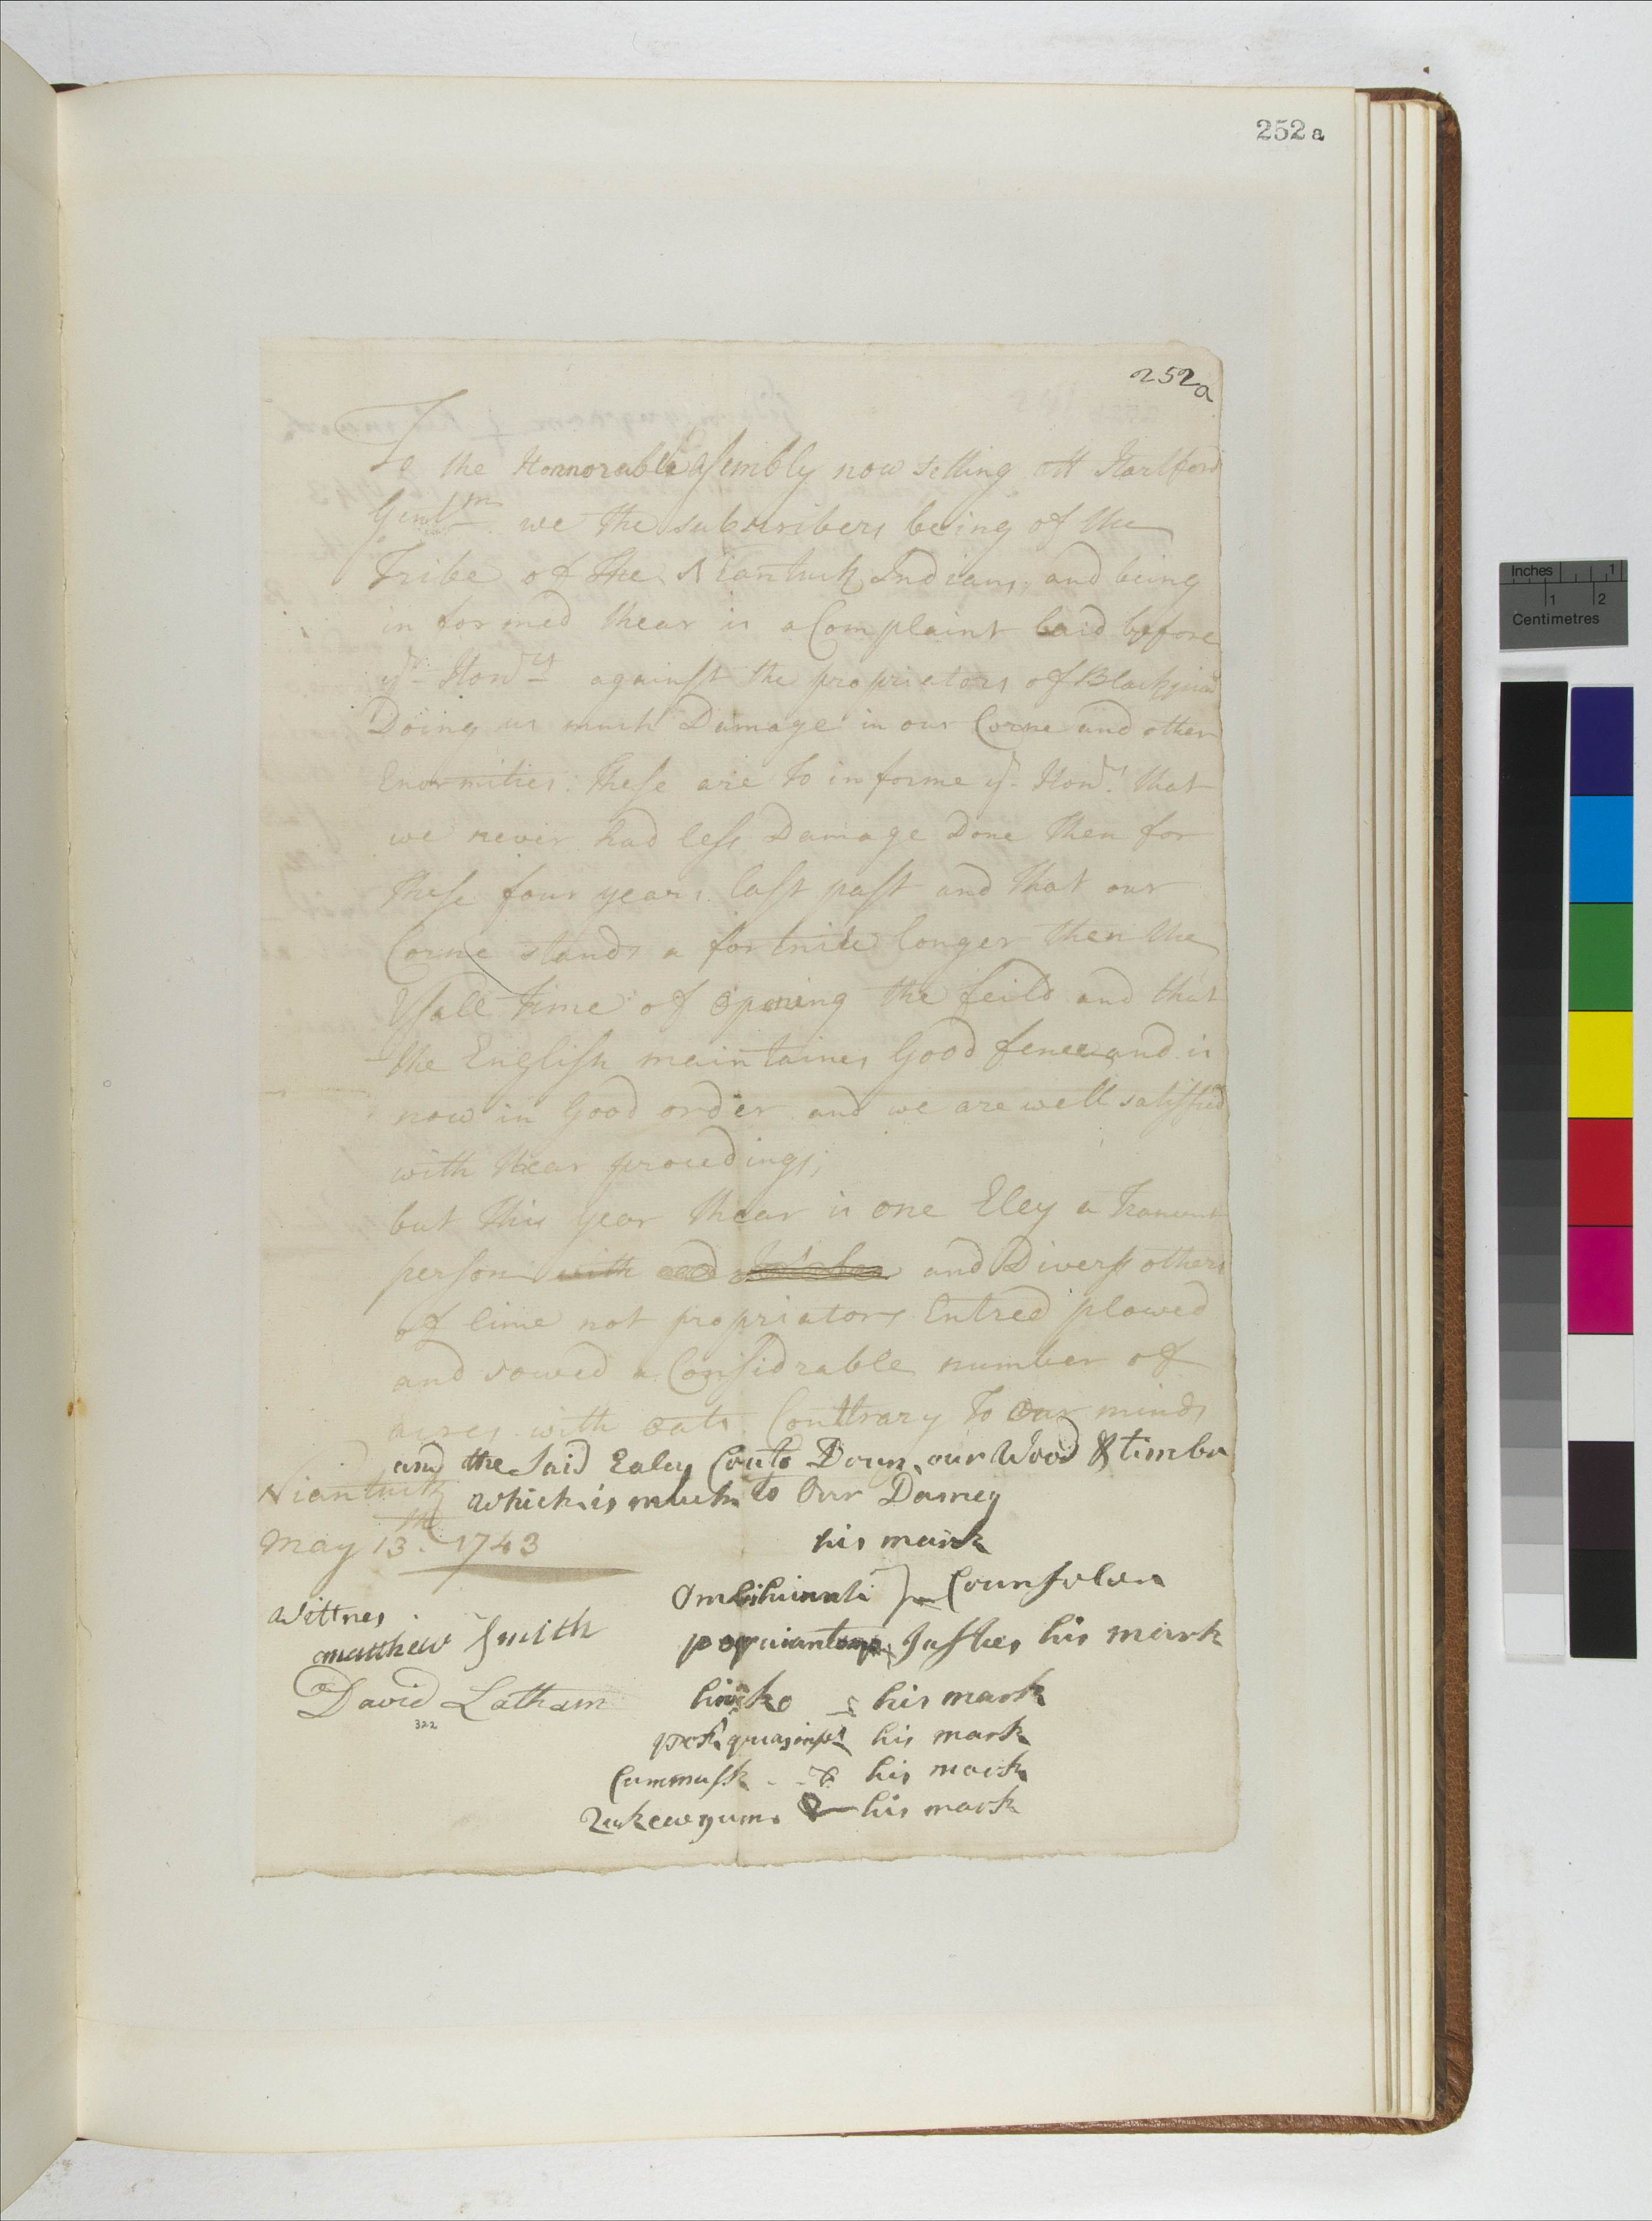 252 a
252a
To the Honnorable Asembly now setting att Hartford
Gentm we the subscribers being of the
Tribe of the Niantuck Indians, and being
in formed thear is a Complaint laid before
yr Honrs against the propriators of Black
Doing us much Damage in our Corne and other
Enormities: these are to in forme yr Honrs that
we never had less Damage Done then for
these four years last past and that our
Corne stands a fortnite longer then the
Usall time of opening the feild and that
the English maintaines Good fence and is
now in Good order and we are well satisfied
with thear procedings;
but this year thear is one Eley a Transent
person with and and Divers others
of lime not propriators Entred plowed
and sowed a Considrable number of
acres with oats Conttrary to our minds
and the Said Ealey Couts Doun our Wood & timber
Niantuck which is much to Our Damey
May 13th 1743
his mark
Counselers
Wittnes
matthew Smith
Justes his mark
David Latham
his mark
322
his mark
Cummusk his mark
his mark
Inches 1
1 2
Centimetres